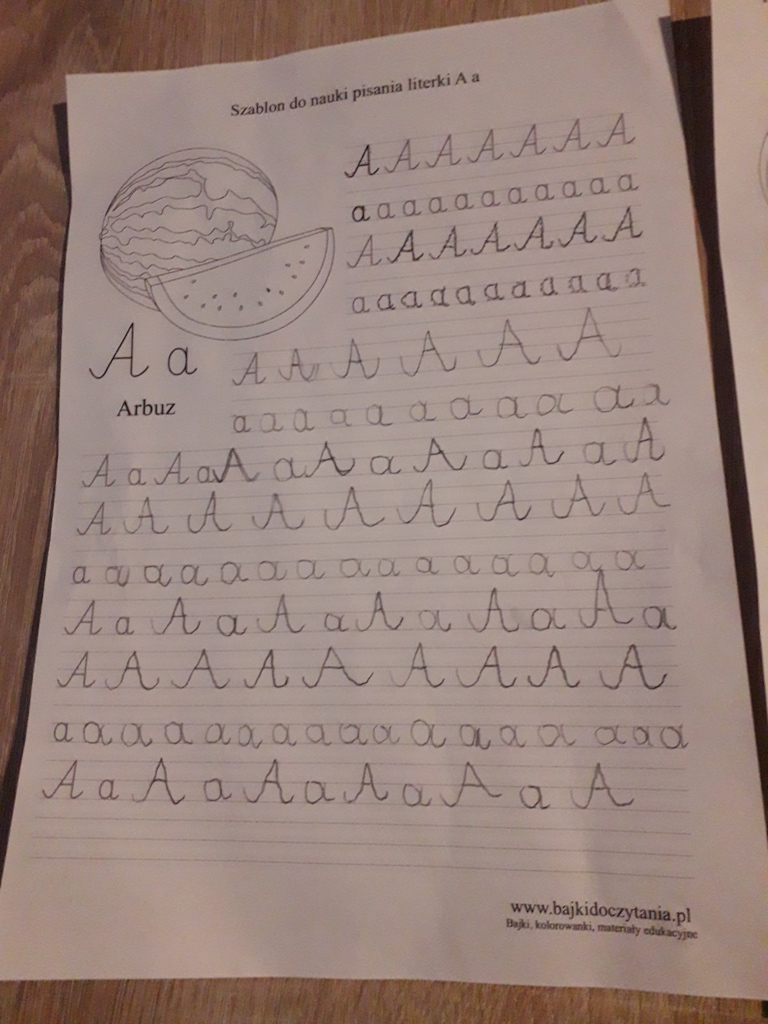 Szablon do nauki pisania literki A a
A A A A A A A
a a a a a a a a a a a
A A A A A A A
a a a a a a a a a a a
A a
Arbuz
A A A A A A
a a a a a a a a a a a
A a A a A a A a A a A a A
A A A A A A A A A
a a a a a a a a a a a a a a a
A a A a A a A a A a A a
A A A A A A A A A
a a a a a a a a a a a a a a a a a
A a A a A a A a A a A
www.bajkidoczytania.pl
Bajki, kolorowanki, materiały edukacyjne